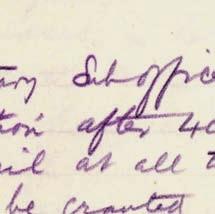 ary Sub office
tion after 40
il at all t
be granted